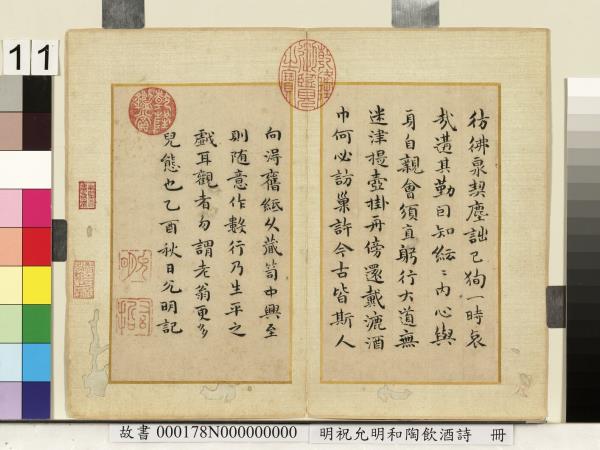 彷彿泉契塵詘己狥一時哀
哉遺其勤自知紜〻內心與
身自親會須直躬行大道無
迷津提壺掛舟傍還戴漉酒
巾何必訪巢許今古皆斯人
向得舊紙久藏笥中興至
則隨意作數行乃生平之
戲耳觀者勿謂老翁更多
兒態也乙酉秋日允明記
乾隆御覽之寶
11
故書 000178N000000000 明祝允明和陶飲酒詩 冊